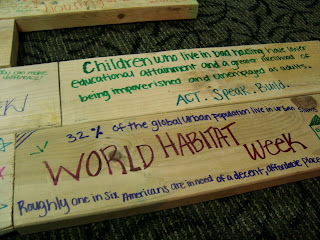 You can make
Children who live in bad housing have lower
educational attainment and a greater likelihood of
being impoverished and unemployed as adults.
ACT. Speak. Build.
32% of the global urban population live in urban slums
WORLD HABITAT Week
Roughly one in six Americans are in need of a decent, affordable place